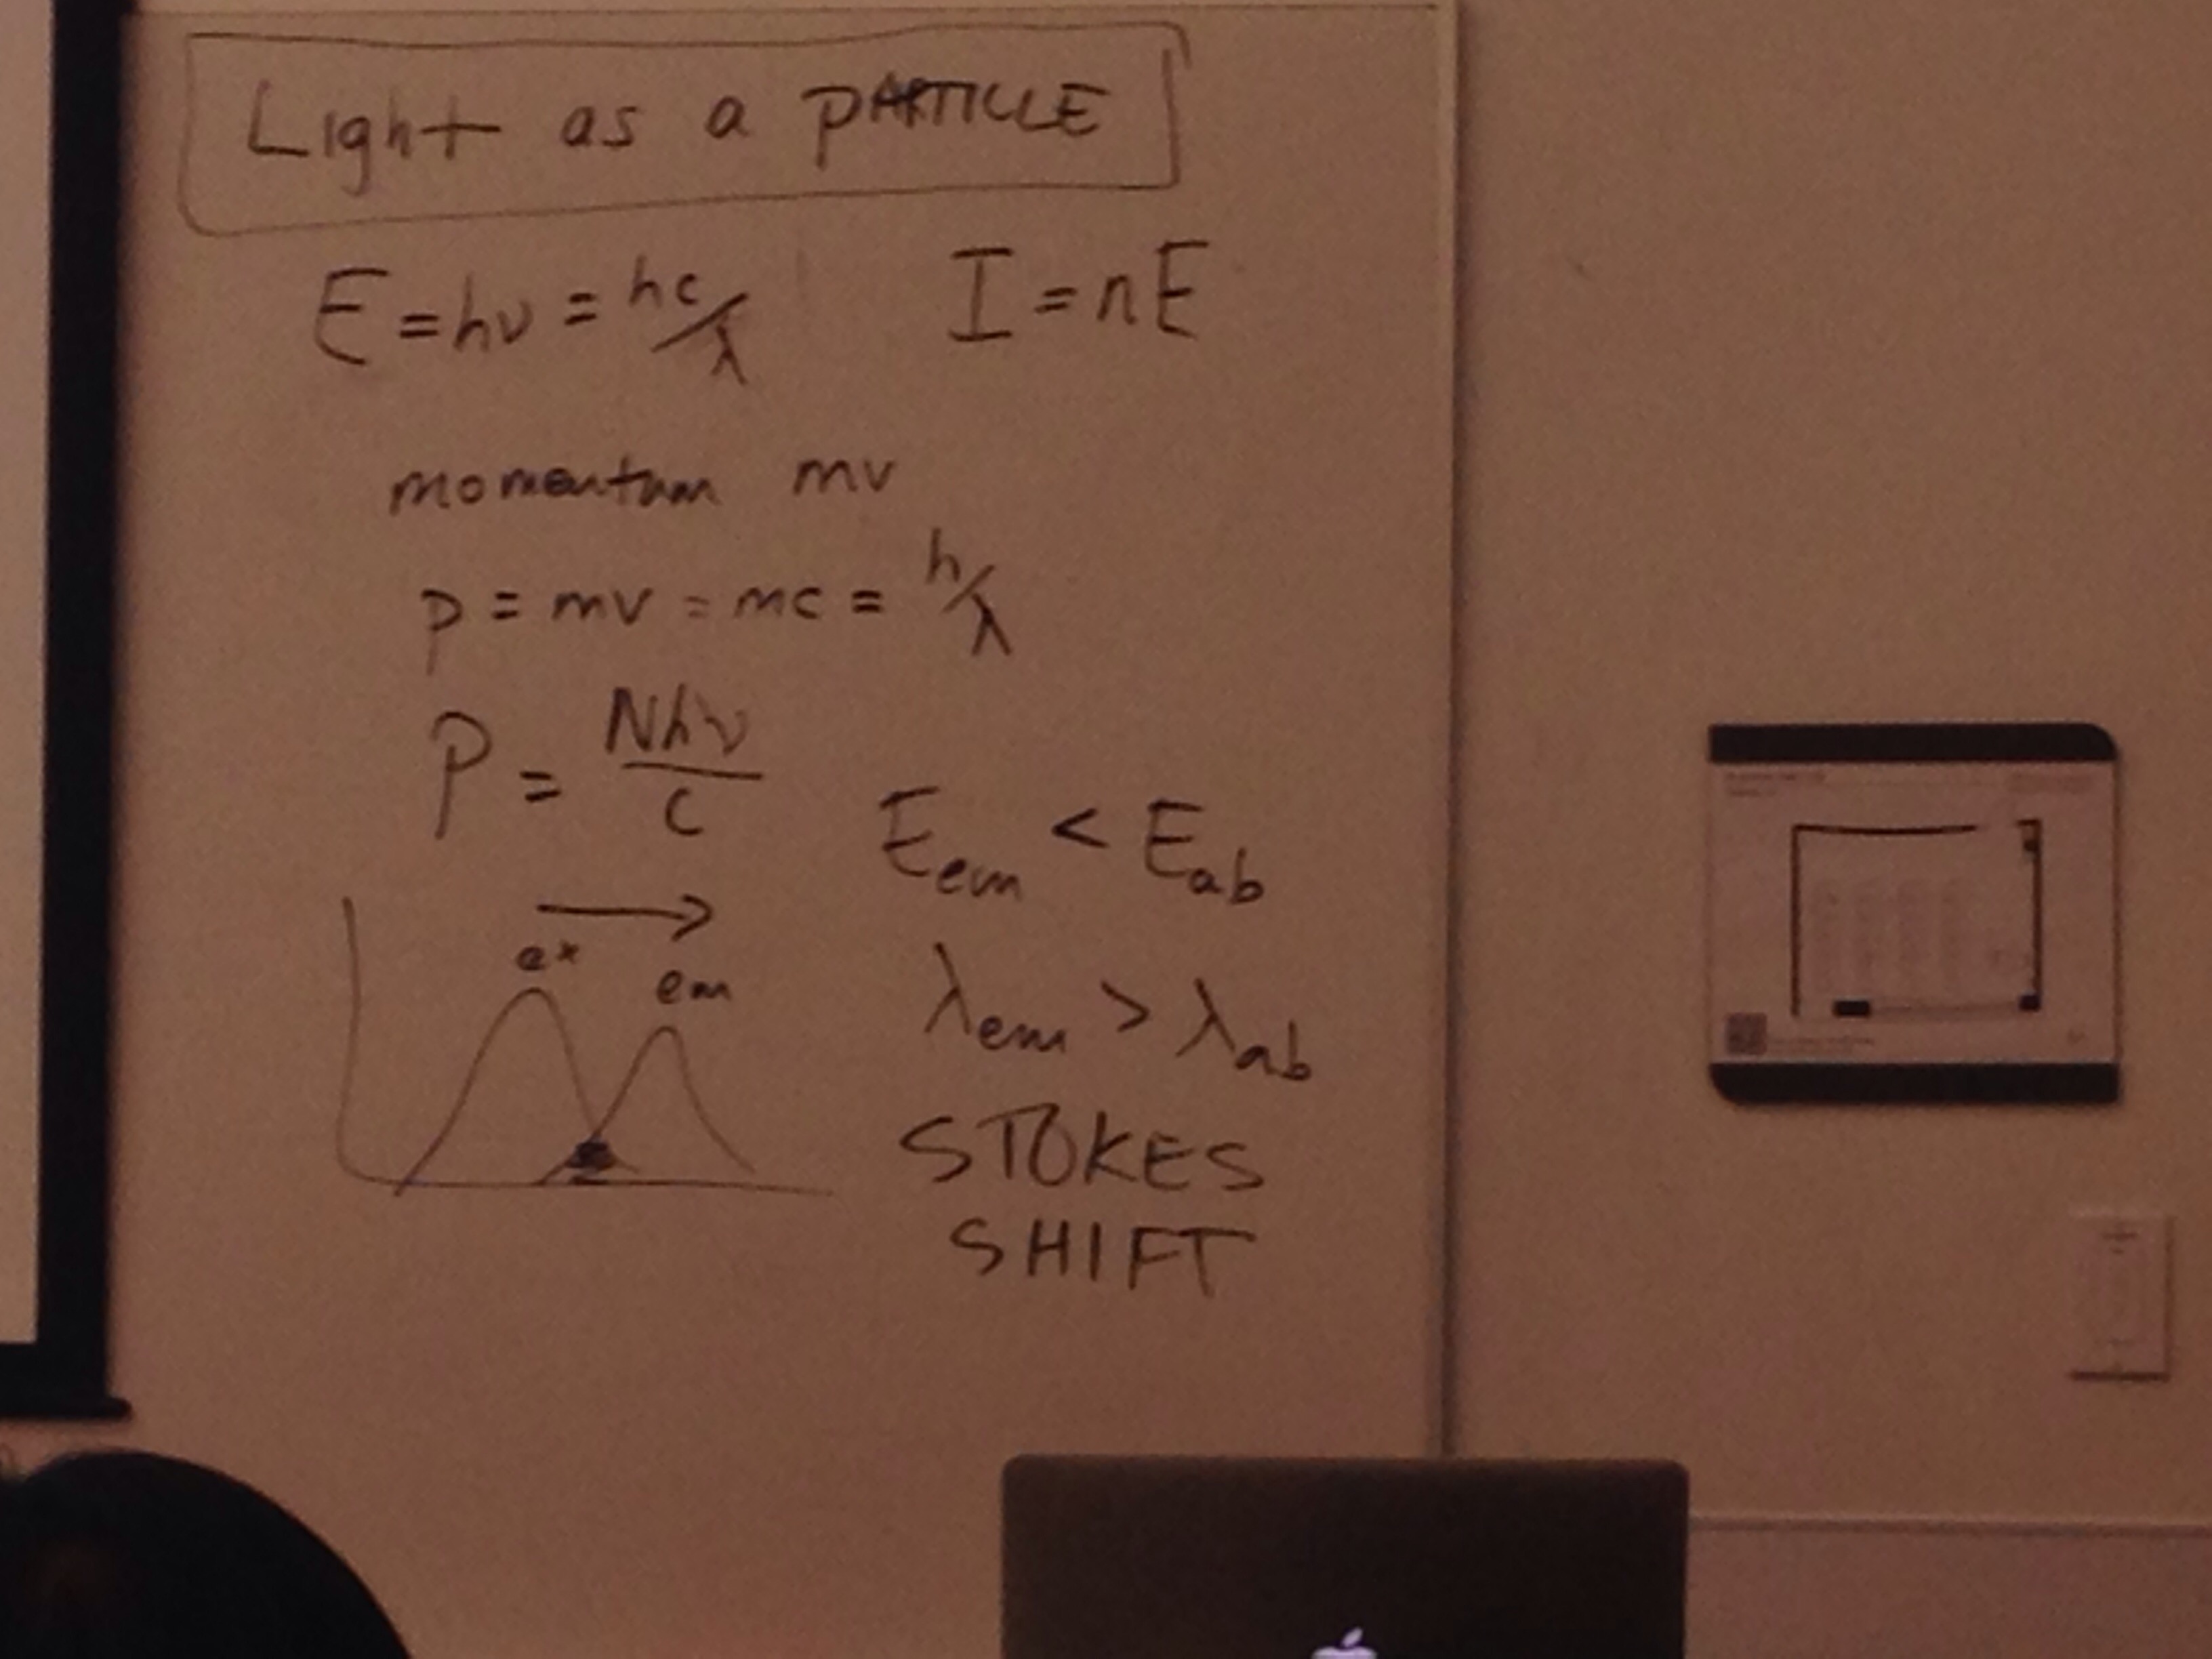 Light as a PARTICLE
E = hν = hc/λ I = nE
momentum mv
p = mv = mc = h/λ
P = Nhν/c
E_em < E_ab
ex
em
λ_em > λ_ab
STOKES
SHIFT